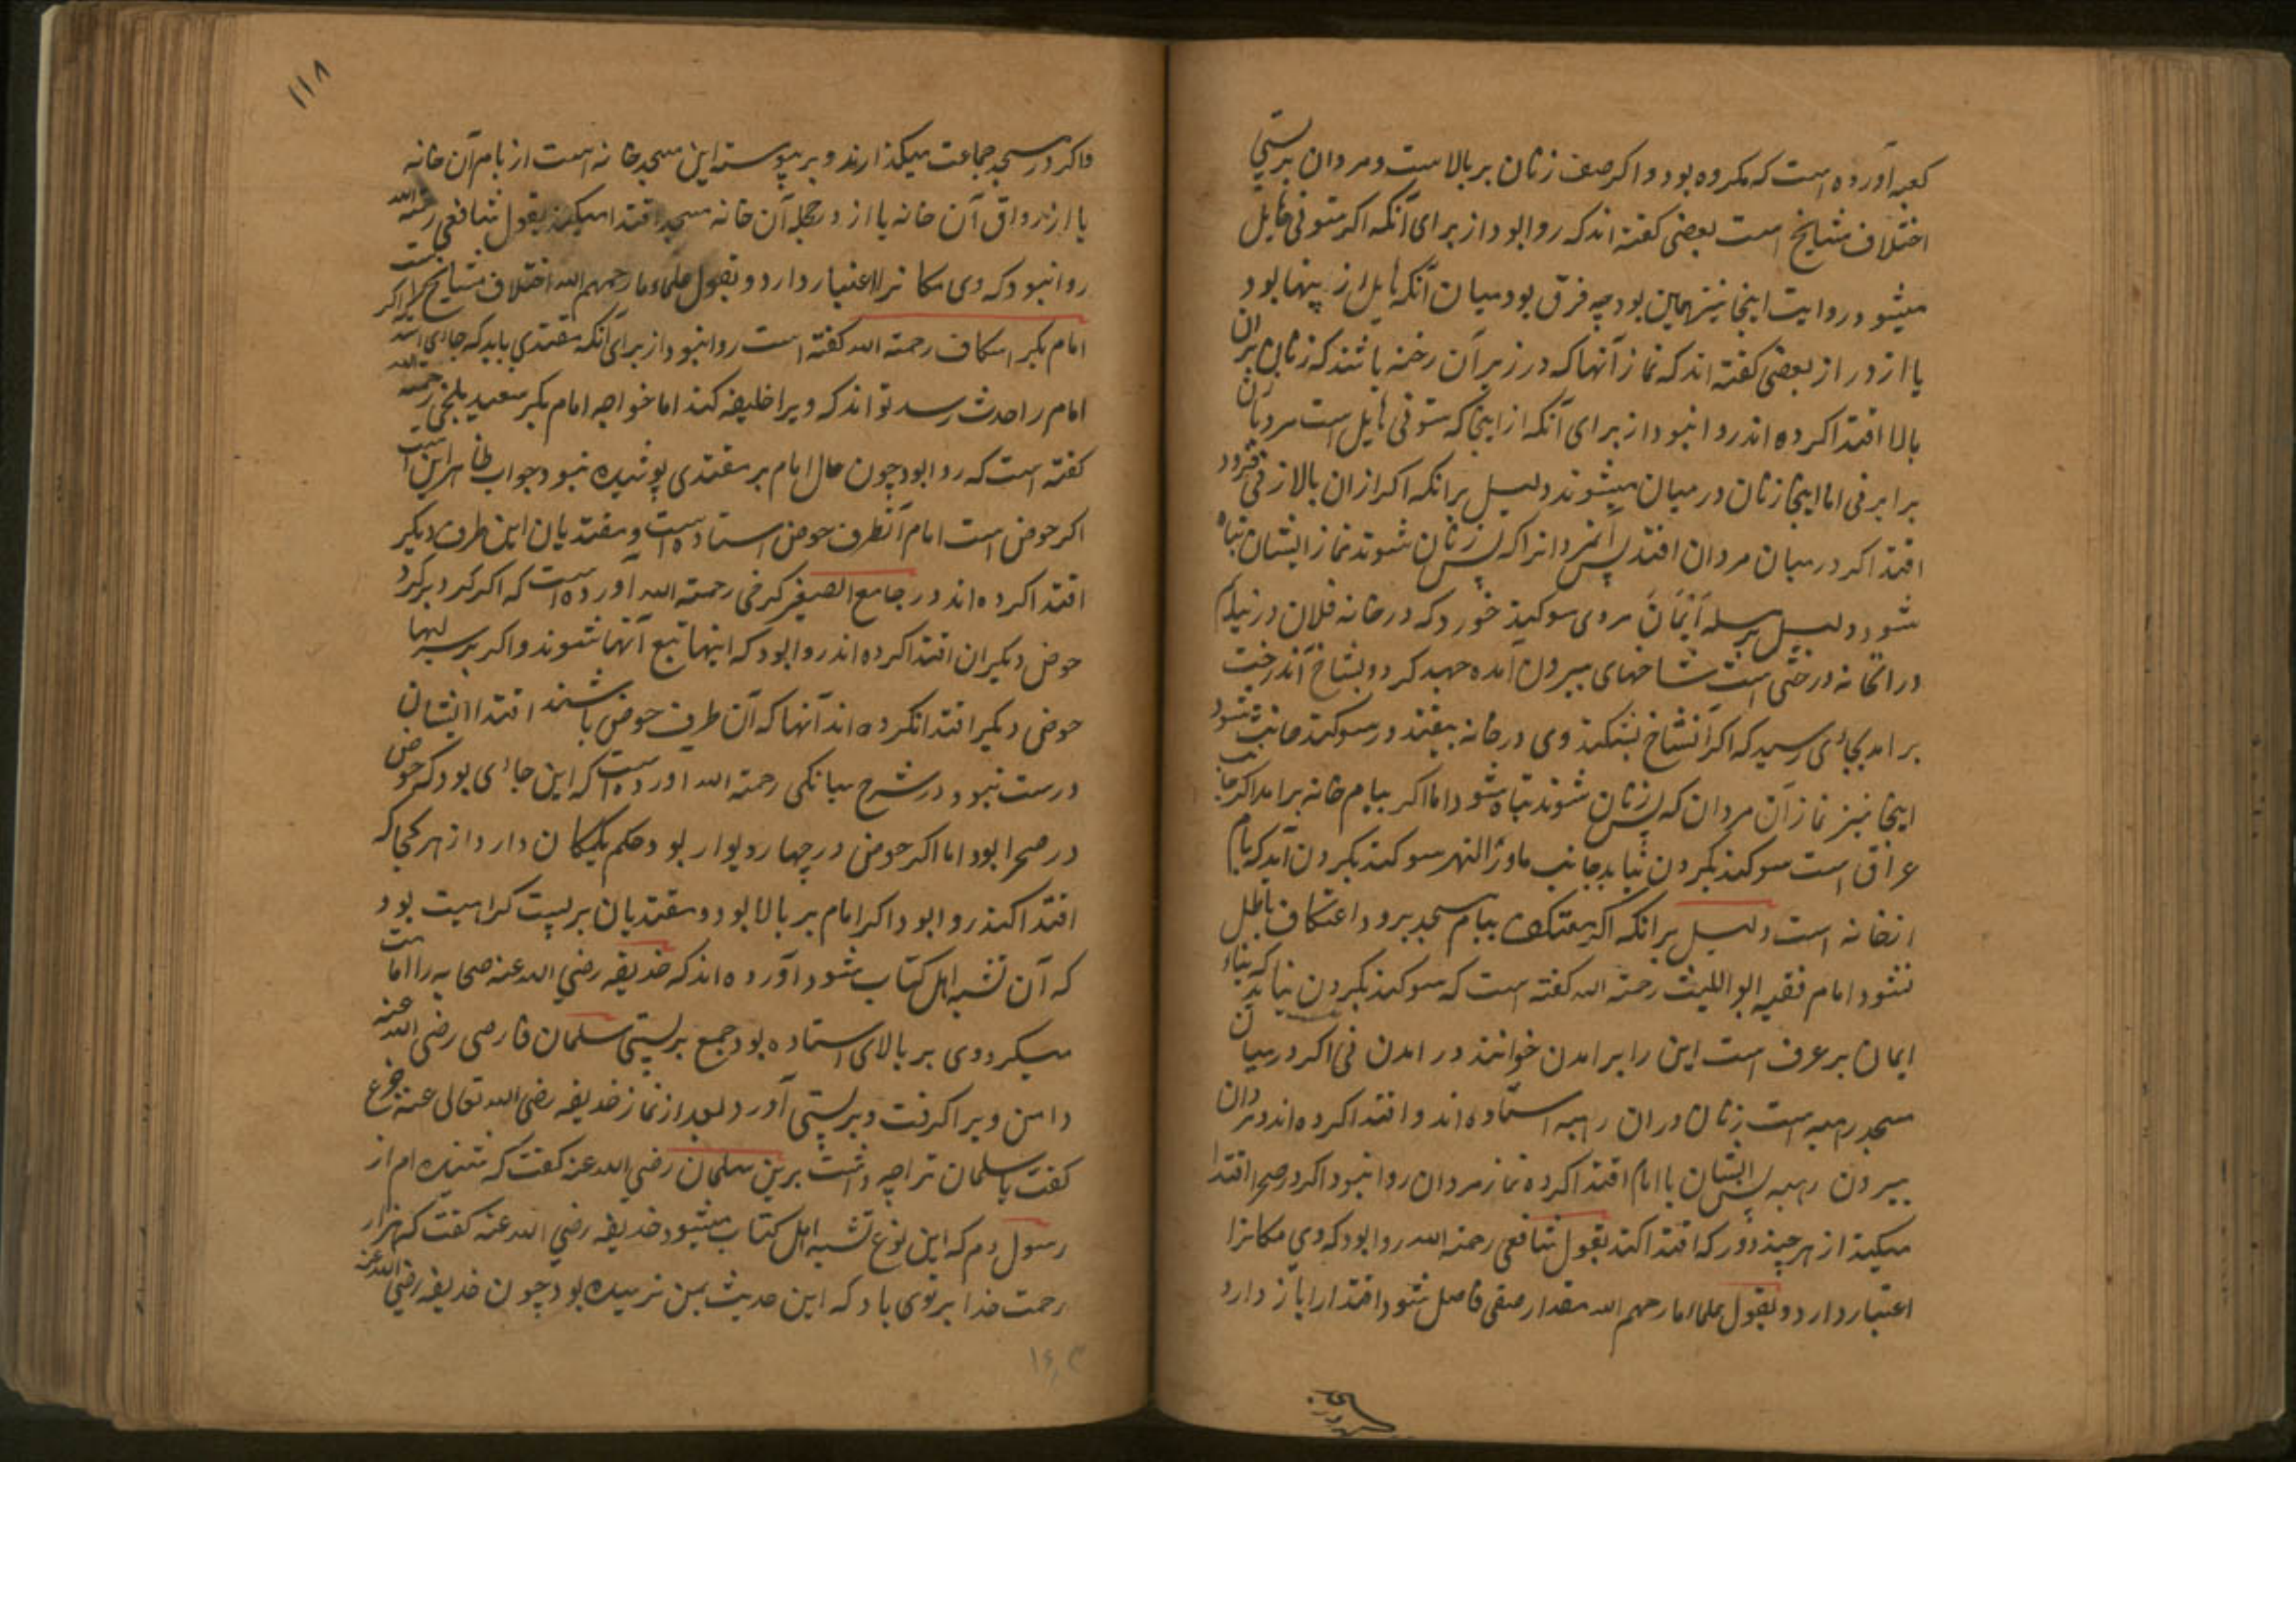 کعبه آورده است که مکروه بود و اکر صف زنان بر بالاست و مردان بر پستی
اختلاف مشایخ است بعضی کفته اند که روا بود از برای آنکه اکر ستونی حایل
میشود روایت اینجا نیز همین بود چه فرق بود میان آنکه حایل از پهنا بود
یا از دراز بعضی کفته اند که نماز آنها که در زیر آن رخنه باشند که زنان بران
بالا اقتدا کرده اند روا نبود از برای آنکه از اینجا که ستونی حایل است مردیان
برابر نی اما اینجا زنان در میان میشوند دلیل برانکه اکر ازان بالا زنی فرود
افتد اکر در میان مردان افتد پس آنمردانرا که پس زنان شوند نماز ایشان تباه
شود و دلیل برمسله آیمان مردی سوکند خورد که در خانه فلان در نیایم
در انخانه درختی است شاخهای بیرون آمده جهد کرد و بشاخ آندرخت
برامد بجائی رسید که اکر آنشاخ بشکند وی در خانه بیفتد در سوکند حانث شود
اینجا نیز نماز آن مردان که پس زنان شوند تباه شود اما اکر ببام خانه برامد اکر جانب
عراق است سوکند بکردن نیاید جانب ماورالنهر سوکند بکردن آید که بام
ازخانه است دلیل برانکه اکر معتکف ببام مسجد برود اعتکاف باطل
نشود امام فقیه ابو اللیث رحمة الله کفته است که سوکند بکردن نیاید که بناء
ایمان بر عرف است این را برامدن خوانند در امدن نی اکر در میان
مسجد رهبه است زنان دران رهبه استاده اند و اقتدا کرده اند مردان
بیرون رهبه پس ایشان با امام اقتدا کرده نماز مردان روا نبود اکر در صحرا اقتدا
میکند از هر چند دور که اقتدا کند بقول شافعی رحمة الله روا بود که وی مکانرا
اعتبار دارد و بقول علماء ما رحمهم الله مقدار صفی فاصل شود اقتدا را باز دارد
۱۱۸
واکر در مسجد جماعت میکذارند و بر پیوسته این مسجد خانه است از بام آن خانه
یا از رواق آن خانه یا از درجله آن خانه مسجد اقتدا میکند بقول شافعی رحمة الله
روا نبود که وی مکانرا اعتبار دارد و بقول علماء ما رحمهم الله اختلاف مشایخ است اکر
امام بکبر اسکاف رحمة الله کفته است روا نبود از برای آنکه مقتدی باید که جائی استد
امام را حدث رسد تواند که ویرا خلیفه کند اما خواجه امام بکبر سعید بلخی رحمة الله
کفته است که روا بود چون حال امام بر مقتدی پوشیده نبود جواب ظاهر این است
اکر حوض است امام آنطرف حوض استاده است و مقتدیان این طرف دیکر
اقتدا کرده اند در جامع الصغیر کرخی رحمة الله آورده است که اکر کرد برکرد
حوض دیکران اقتدا کرده اند روا بود که اینها تبع آنها شوند و اکر برسرلبها
حوض دیکر اقتدا نکرده اند آنها که آن طرف حوض باشند اقتدا ایشان
درست نبود و در شرح بیانکی رحمة الله آورده است که این جائی بود که حوض
در صحرا بود اما اکر حوض در چهار دیوار بود حکم یکمکان دارد از هر کجا که
اقتدا کند روا بود اکر امام بر بالا بود و مقتدیان بر پست کراهیت بود
که آن تشبه اهل کتاب شود آورده اند که حذیفه رضی الله عنه صحابه را امامت
میکرد وی بر بالای استاده بود جمع بر پستی سلمان فارسی رضی الله عنه
دامن ویرا کرفت و بر پستی آورد بعد از نماز حذیفه رضی الله تعالی عنه
کفت یا سلمان ترا چه داشت برین سلمان رضی الله عنه کفت که شنیده ام از
رسول م که این نوع تشبه اهل کتاب میشود حذیفه رضی الله عنه کفت که هزار
رحمت خدا بر توی باد که این حدیث بمن نرسیده بود چون حذیفه رضی الله عنه